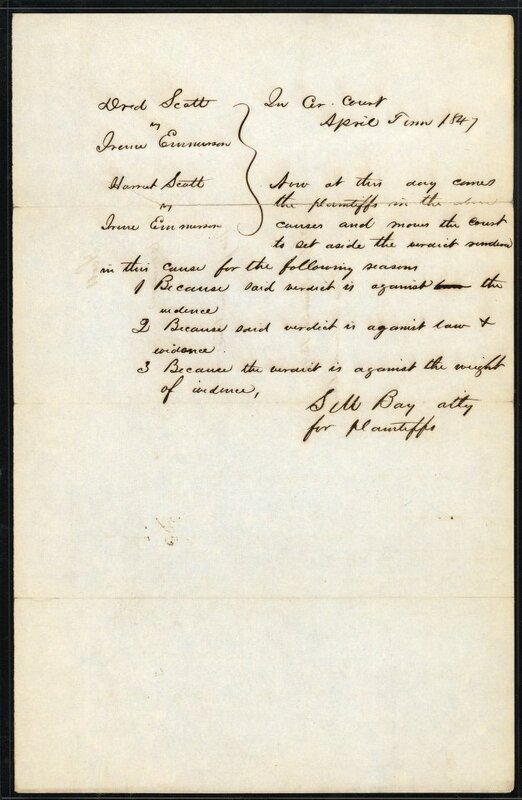 Dred Scott
vs
Irene Emmerson
In Cir. Court
April Term 1847
Harriet Scott
vs
Irene Emmerson
Now at this day comes
the plaintiffs in the above
causes and moves the court
to set aside the verdict rendered
in this cause for the following reasons
1 Because said verdict is against the
evidence
2 Because said verdict is against law &
evidence.
3 Because the verdict is against the weight
of evidence,
S M Bay atty
for plaintiffs